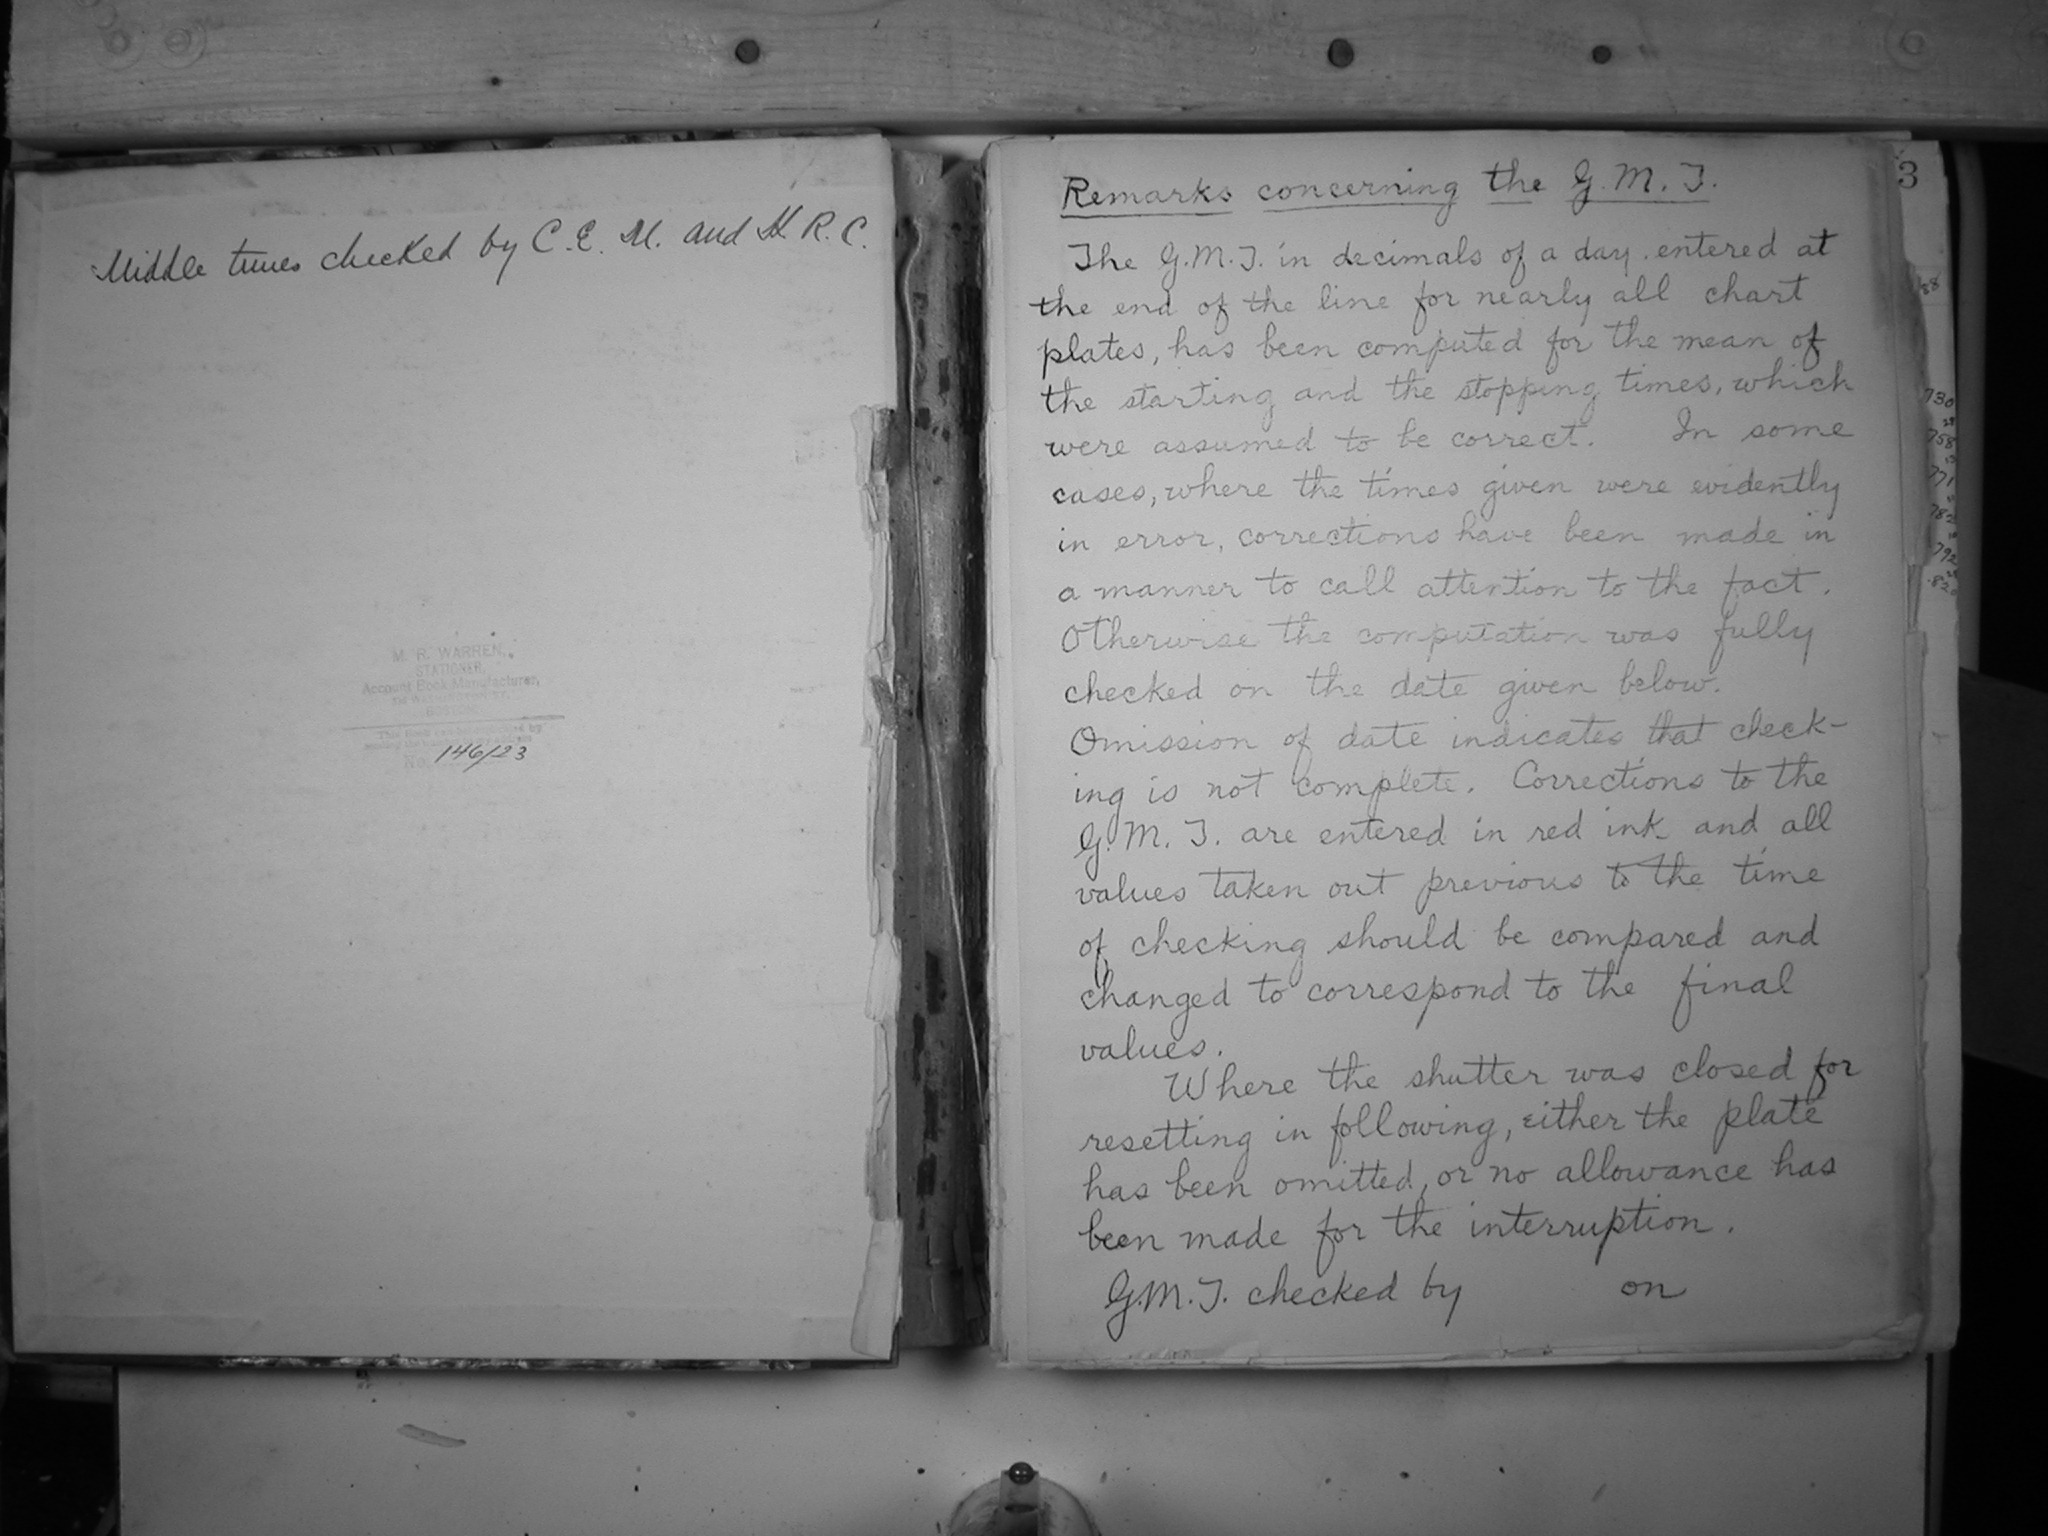 Middle times checked by C. E. M. and H. R. C.
M. R. WARREN,
STATIONER,
Account Book Manufacturer,
No. 146/23
Remarks concerning the G. M. T.
The G.M.T. in decimals of a day, entered at
the end of the line for nearly all chart
plates, has been computed for the mean of
the starting and the stopping times, which
were assumed to be correct. In some
cases, where the times given were evidently
in error, corrections have been made in
a manner to call attention to the fact.
Otherwise the computation was fully
checked on the date given below.
Omission of date indicates that check-
ing is not complete. Corrections to the
G. M. T. are entered in red ink and all
values taken out previous to the time
of checking should be compared and
changed to correspond to the final
values.
Where the shutter was closed for
resetting in following, either the plate
has been omitted, or no allowance has
been made for the interruption.
G.M.T. checked by on
3
88
730
758
771
782
792
820